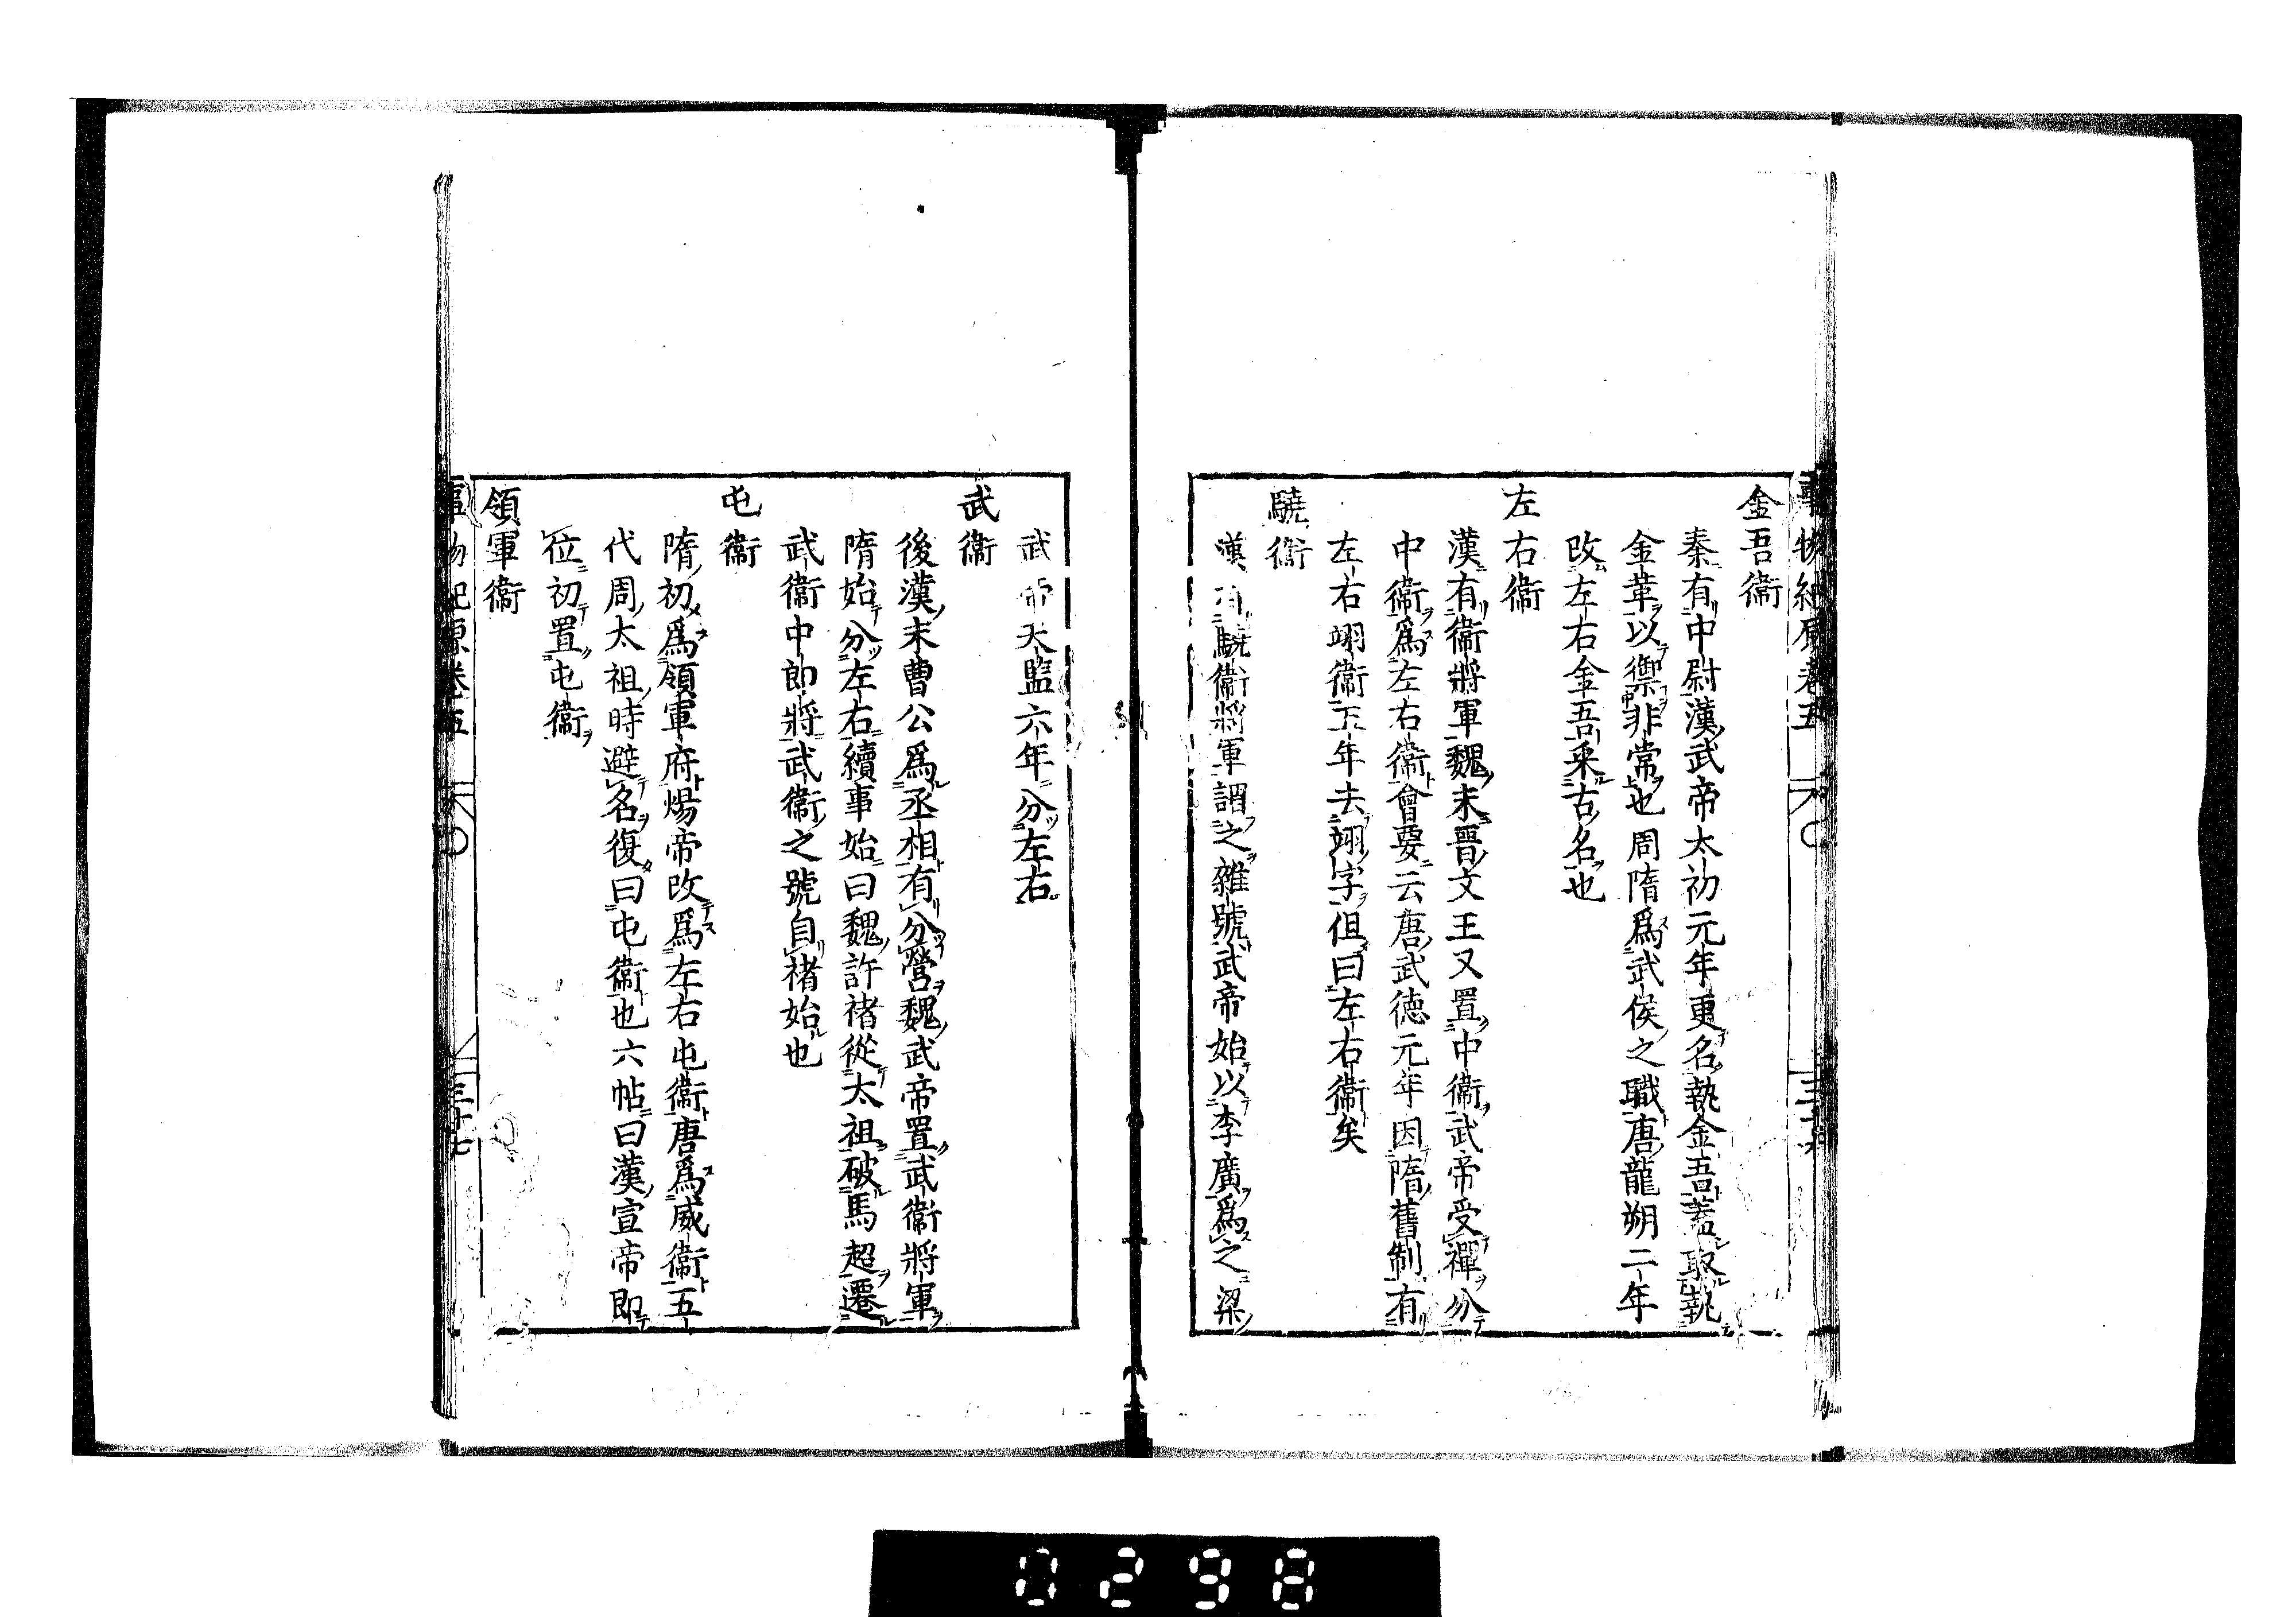 事物紀原卷五
金吾衞
秦有中尉漢武帝太初元年更名執金吾蓋取執
金革以禦非常也周隋爲武侯之職唐龍朔二年
改左右金吾采古名也
左右衞
漢有衞將軍魏末晉文王又置中衞武帝受禪分
中衞爲左右衞會要云唐武德元年因隋舊制有
左右翊衞五年去翊字但曰左右衞矣
驍衞
漢有驍衞將軍謂之雜號武帝始以李廣爲之梁
武帝天監六年分左右
武衞
後漢末曹公爲丞相有分營魏武帝置武衞將軍
隋始分左右續事始曰魏許褚從太祖破馬超遷
武衞中郎將武衞之號自褚始也
屯衞
隋初爲領軍府煬帝改爲左右屯衞唐爲威衞五
代周太祖時避名復曰屯衞也六帖曰漢宣帝即
位初置屯衞
領軍衞
事物紀原卷五
三十七
0298